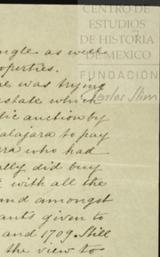 CENTRO DE
ESTUDIOS
DE HISTORIA
DE MEXICO
FUNDACIÓN
Carlos Slim
ngle as well
operties.
e was trying
estate which
lic auction by
alajara to pay
ra who had
ally did buy
with all the
and amongst
ants given to
and 1709 Still
the view to